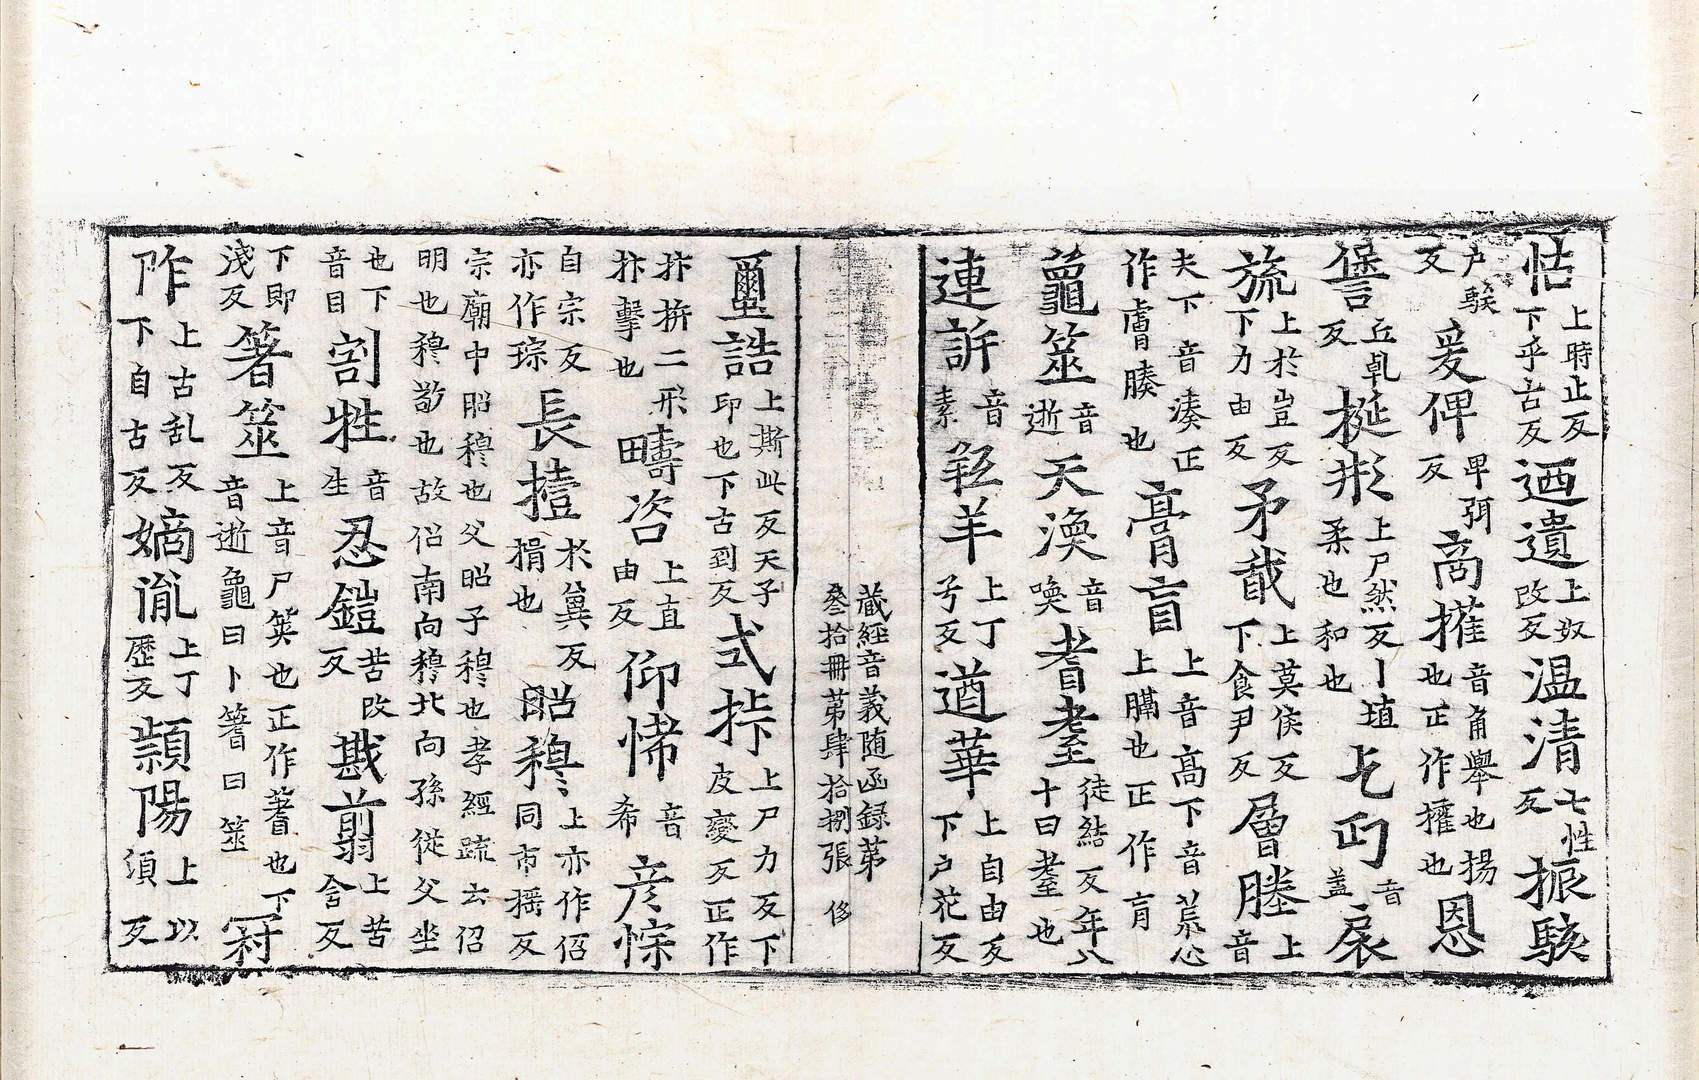 怙上時止反下乎古反迺遺上奴改反温清七性反振駭
户騃反爰俾卑弭反啇㩁音角舉也揚也正作㩁也恩
㒪丘虔反梴形上尸然反丨埴柔也和也乞丏音蓋扆
旒上於豈反下力由反矛戢上莫侯反下食尹反層塍上音
夫下音湊正作膚腠也膏肓上音高下音荒心上膈也正作肓
蓍筮音逝天渙音喚耆耋徒結反年八十曰耋也
連訴音素羝羊上丁兮反遒華上自由反下户花反
藏經音義随函録苐叄拾冊苐肆拾捌張 侈
璽誥上斯此反天子印也下古到反式抃上尸力反下皮變反正作
抃拚二形抃擊也疇咨上直由反仰悕音希彦悰
自宗反亦作琮長撎於冀反揖也昭穆上亦作佋同市摇反
宗廟中昭穆也父昭子穆也孝經疏云佋明也穆敬也故佋南向穆北向孫從父坐
也下音目割牲音生忍鎧苦改反戡翦上苦含反
下即淺反箸筮上音尸筴也正作蓍也下音逝龜曰卜蓍曰筮冠
阼上古乱反下自古反嫡胤上丁歷反頴陽上以須反